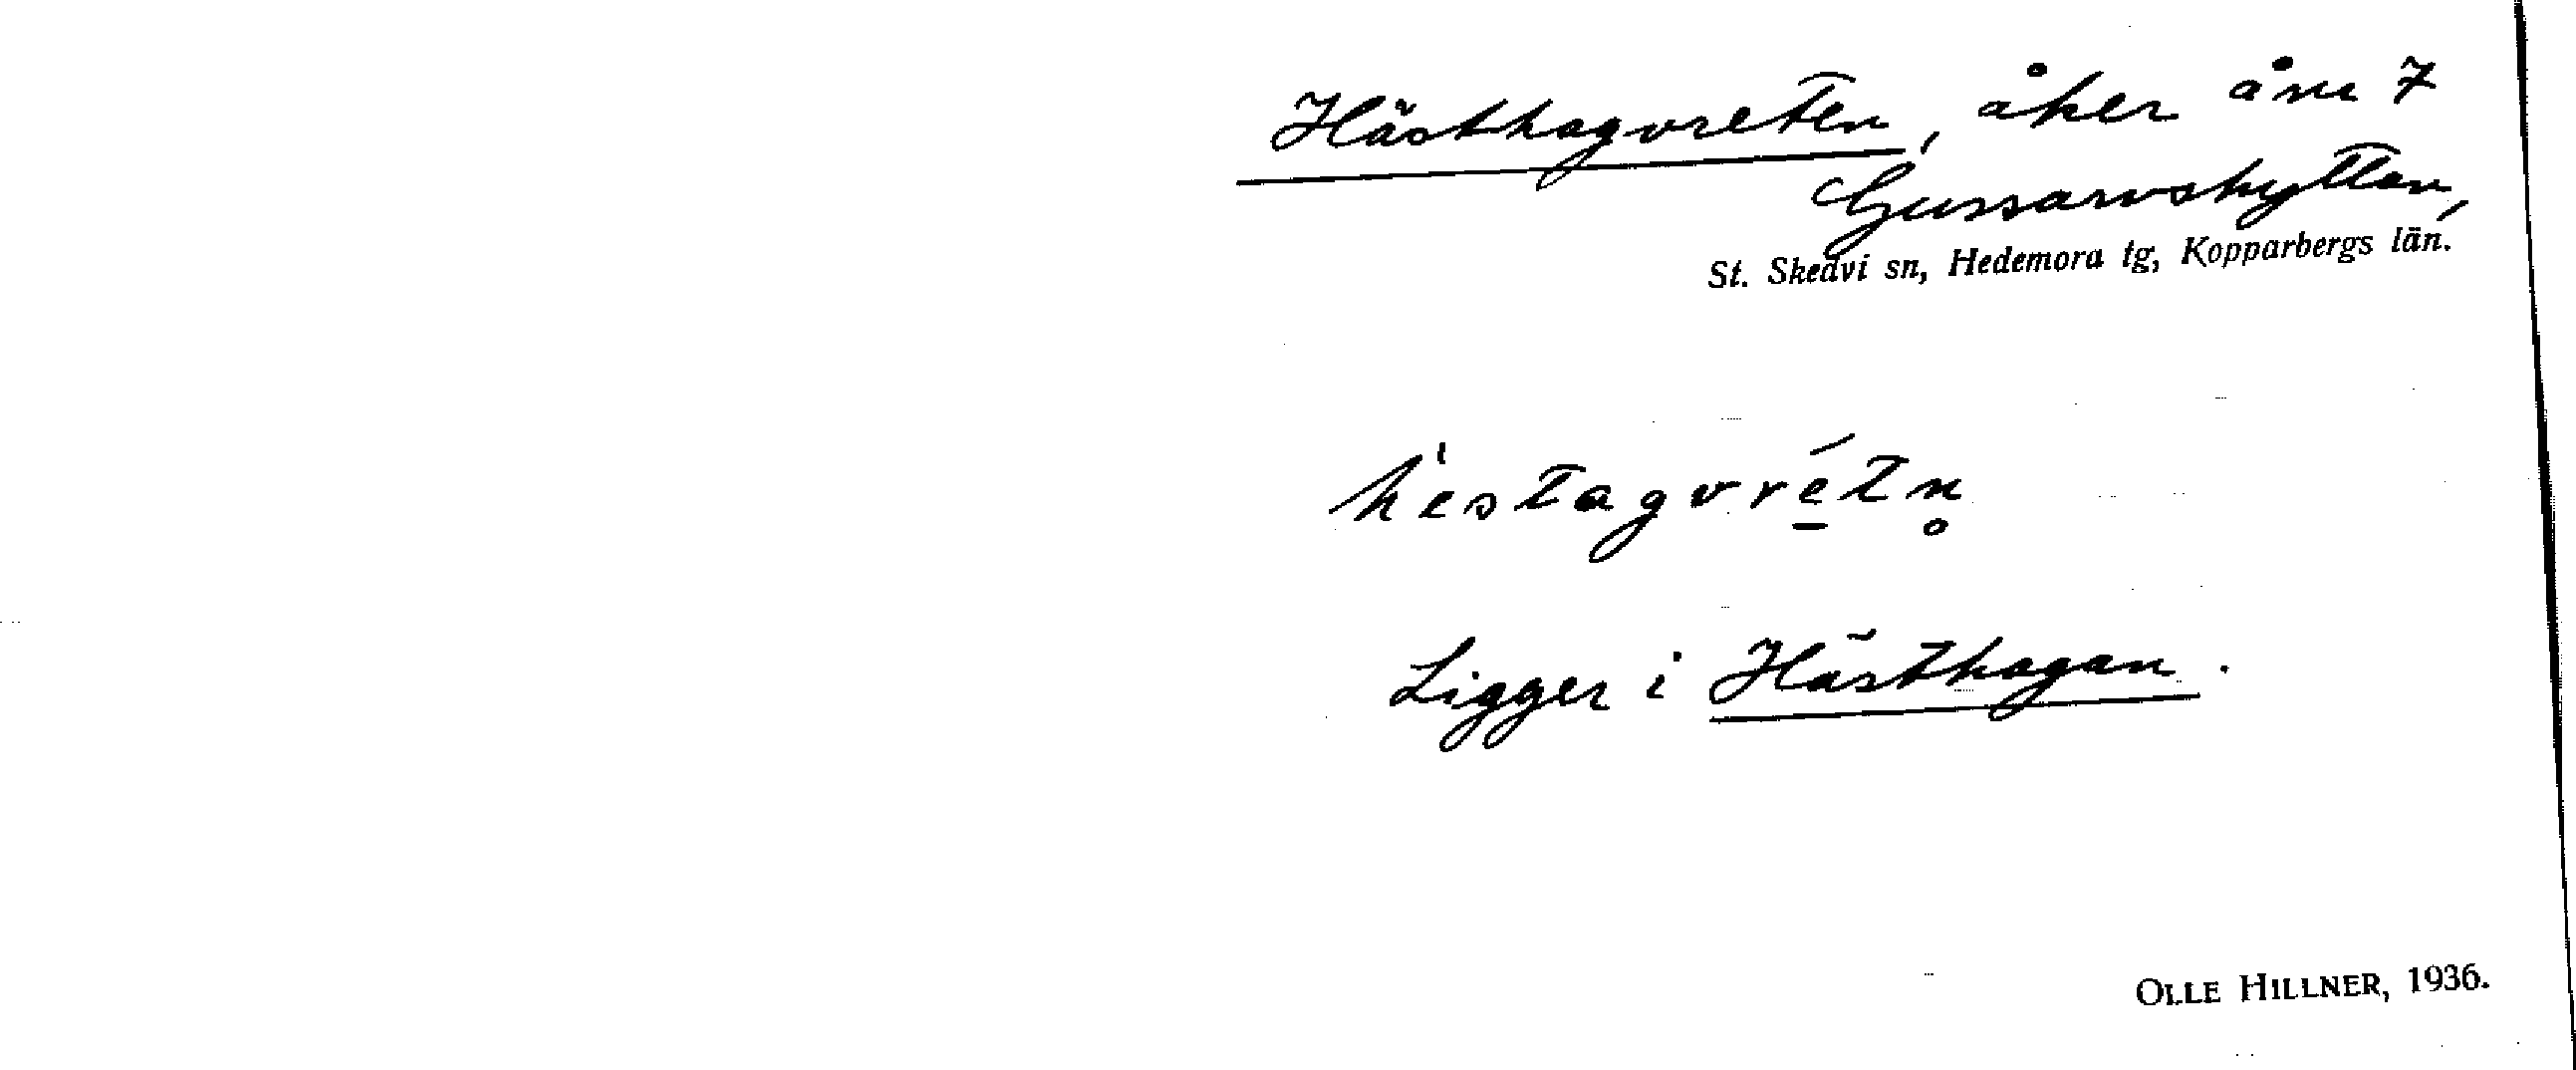 Hästhagvreten, åker åm 7
Gussarvshyttan,
St. Skedvi sn, Hedemora tg, Kopparbergs län.
hèstagvrétn̥
Ligger i Hästhagan.
OLLE HILLNER, 1936.